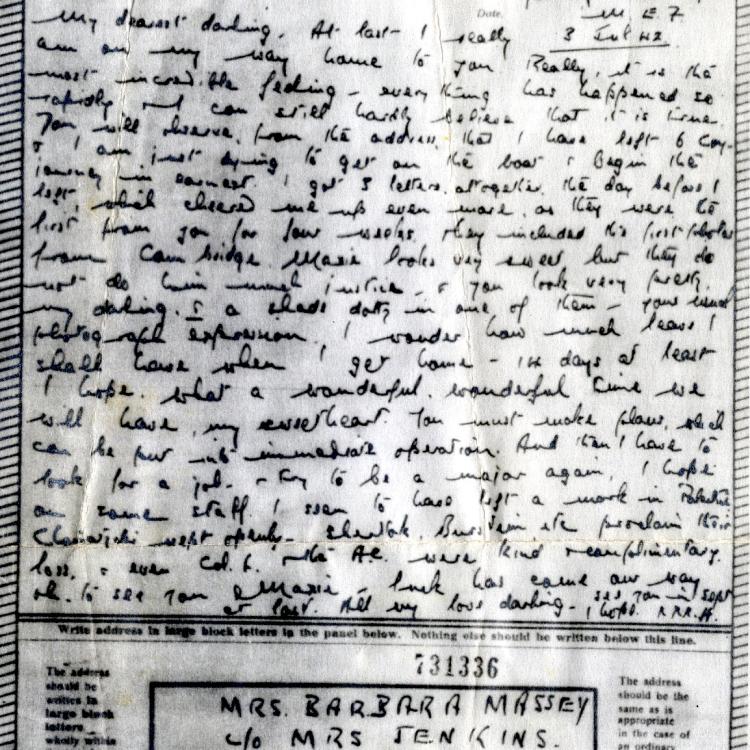 Date.
M.E.F
3 Jul 42.
My dearest darling. At last I really
am on my way home to you Really, it is the
most incredible feeling - everything has happened so
rapidly and I can still hardly believe that it is true.
You will observe from the address that I have left 6 Coy-
& I am just trying to get on the boat & begin the
journey in earnest. I got 3 letters altogether the day before I
left, which cheered me up even more as they were the
first from you for four weeks. They included the first photos
from Cambridge. Maxie looks very sweet, but they do
not do him much justice, & you look very pretty,
my darling. & a shade dotty in one of them - your usual
photograph expression. I wonder how much leave I
shall have when I get home - 14 days at least
I hope. What a wonderful, wonderful time we
will have, my sweetheart. You must make plans, which
can be put into immediate operation. And then I have to
look for a job - try to be a major again, I hope
on some staff. I seem to have left a mark in Palestine
wept openly - Burstein, etc proclaim their
loss, & even Col. 6. & the A.C. were kind & complimentary.
oh. to see you & Maxie - luck has come our way
at last. All my love darling - see you in Sept
I hope. R.R.R.H.
Write address in large block letters in the panel below. Nothing else should be written below this line.
731336
The address
should be
written in
large block
letters
wholly within
MRS. BARBARA MASSEY
c/o MRS JENKINS.
The address
should be the
same as is
appropriate
in the case of
an ordinary